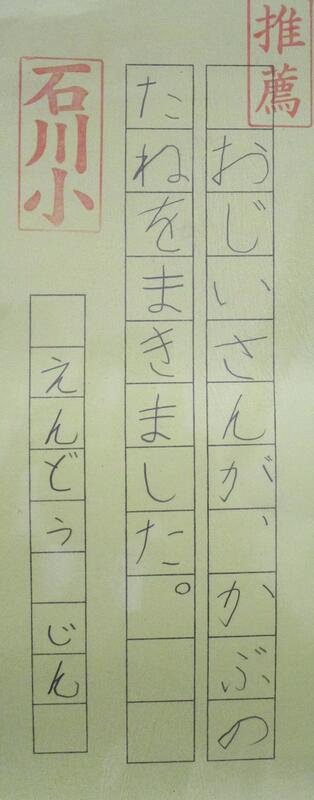 推薦
おじいさんが、かぶの
たねをまきました。
えんどう じん
石川小